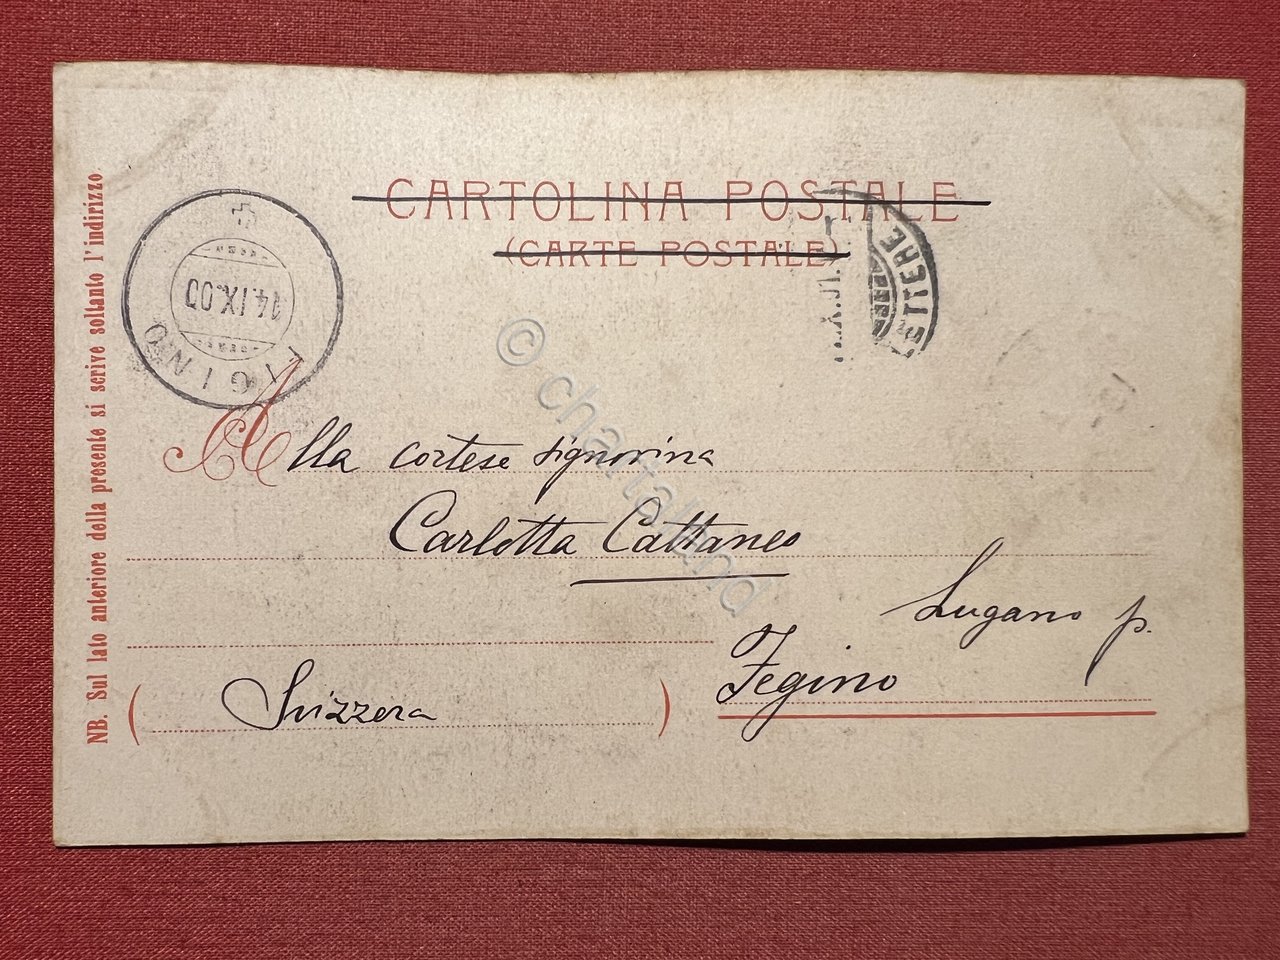 CARTOLINA POSTALE
(CARTE POSTALE)
NB. Sul lato anteriore della presente si scrive soltanto l'indirizzo.
14.IX.00
ETTERE
Alla cortese signorina
Carlotta Cattaneo
Lugano p.
Fegino
(Svizzera)
© chartaland